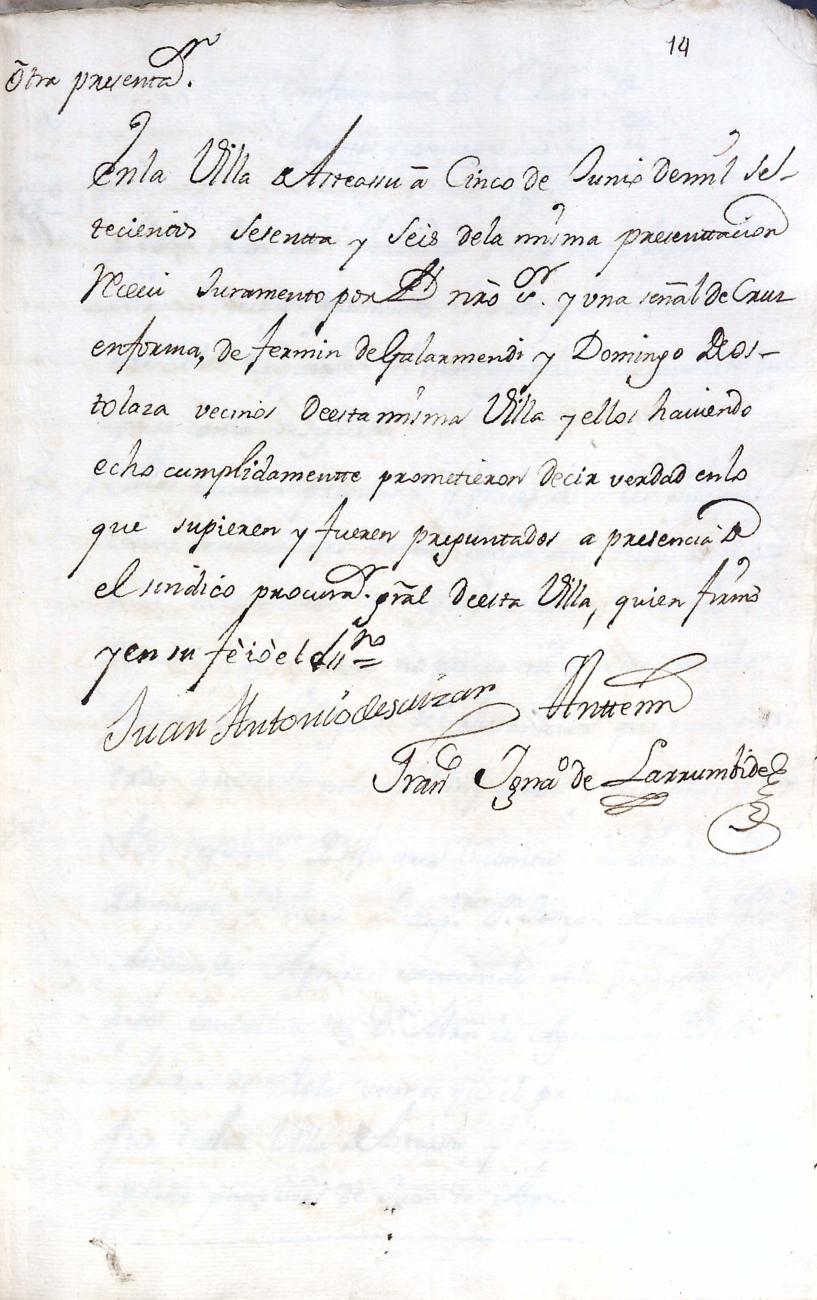 14
Otra presentaon.
En la Villa de Asteassu à Cinco de Junio de mil Set-
tecientos Sesentta y Seis de la misma presenttacion
Receui Juramento por Ds nrô Sr. y vna señal de Cruz
en forma, de Fermin de Galarmendi y Domingo de Os-
tolaza vecinos de esta misma Villa y ellos hauiendo
echo cumplidamentte prometieron decir verdad en lo
que supieren y fueren preguntados a presencia de
el sindico procuraor. gral de esta Villa, quien firmò
y en su fè iò el essno =
Juan Antonio de saizar Antte mi
Franco Ignao de Larrumbide